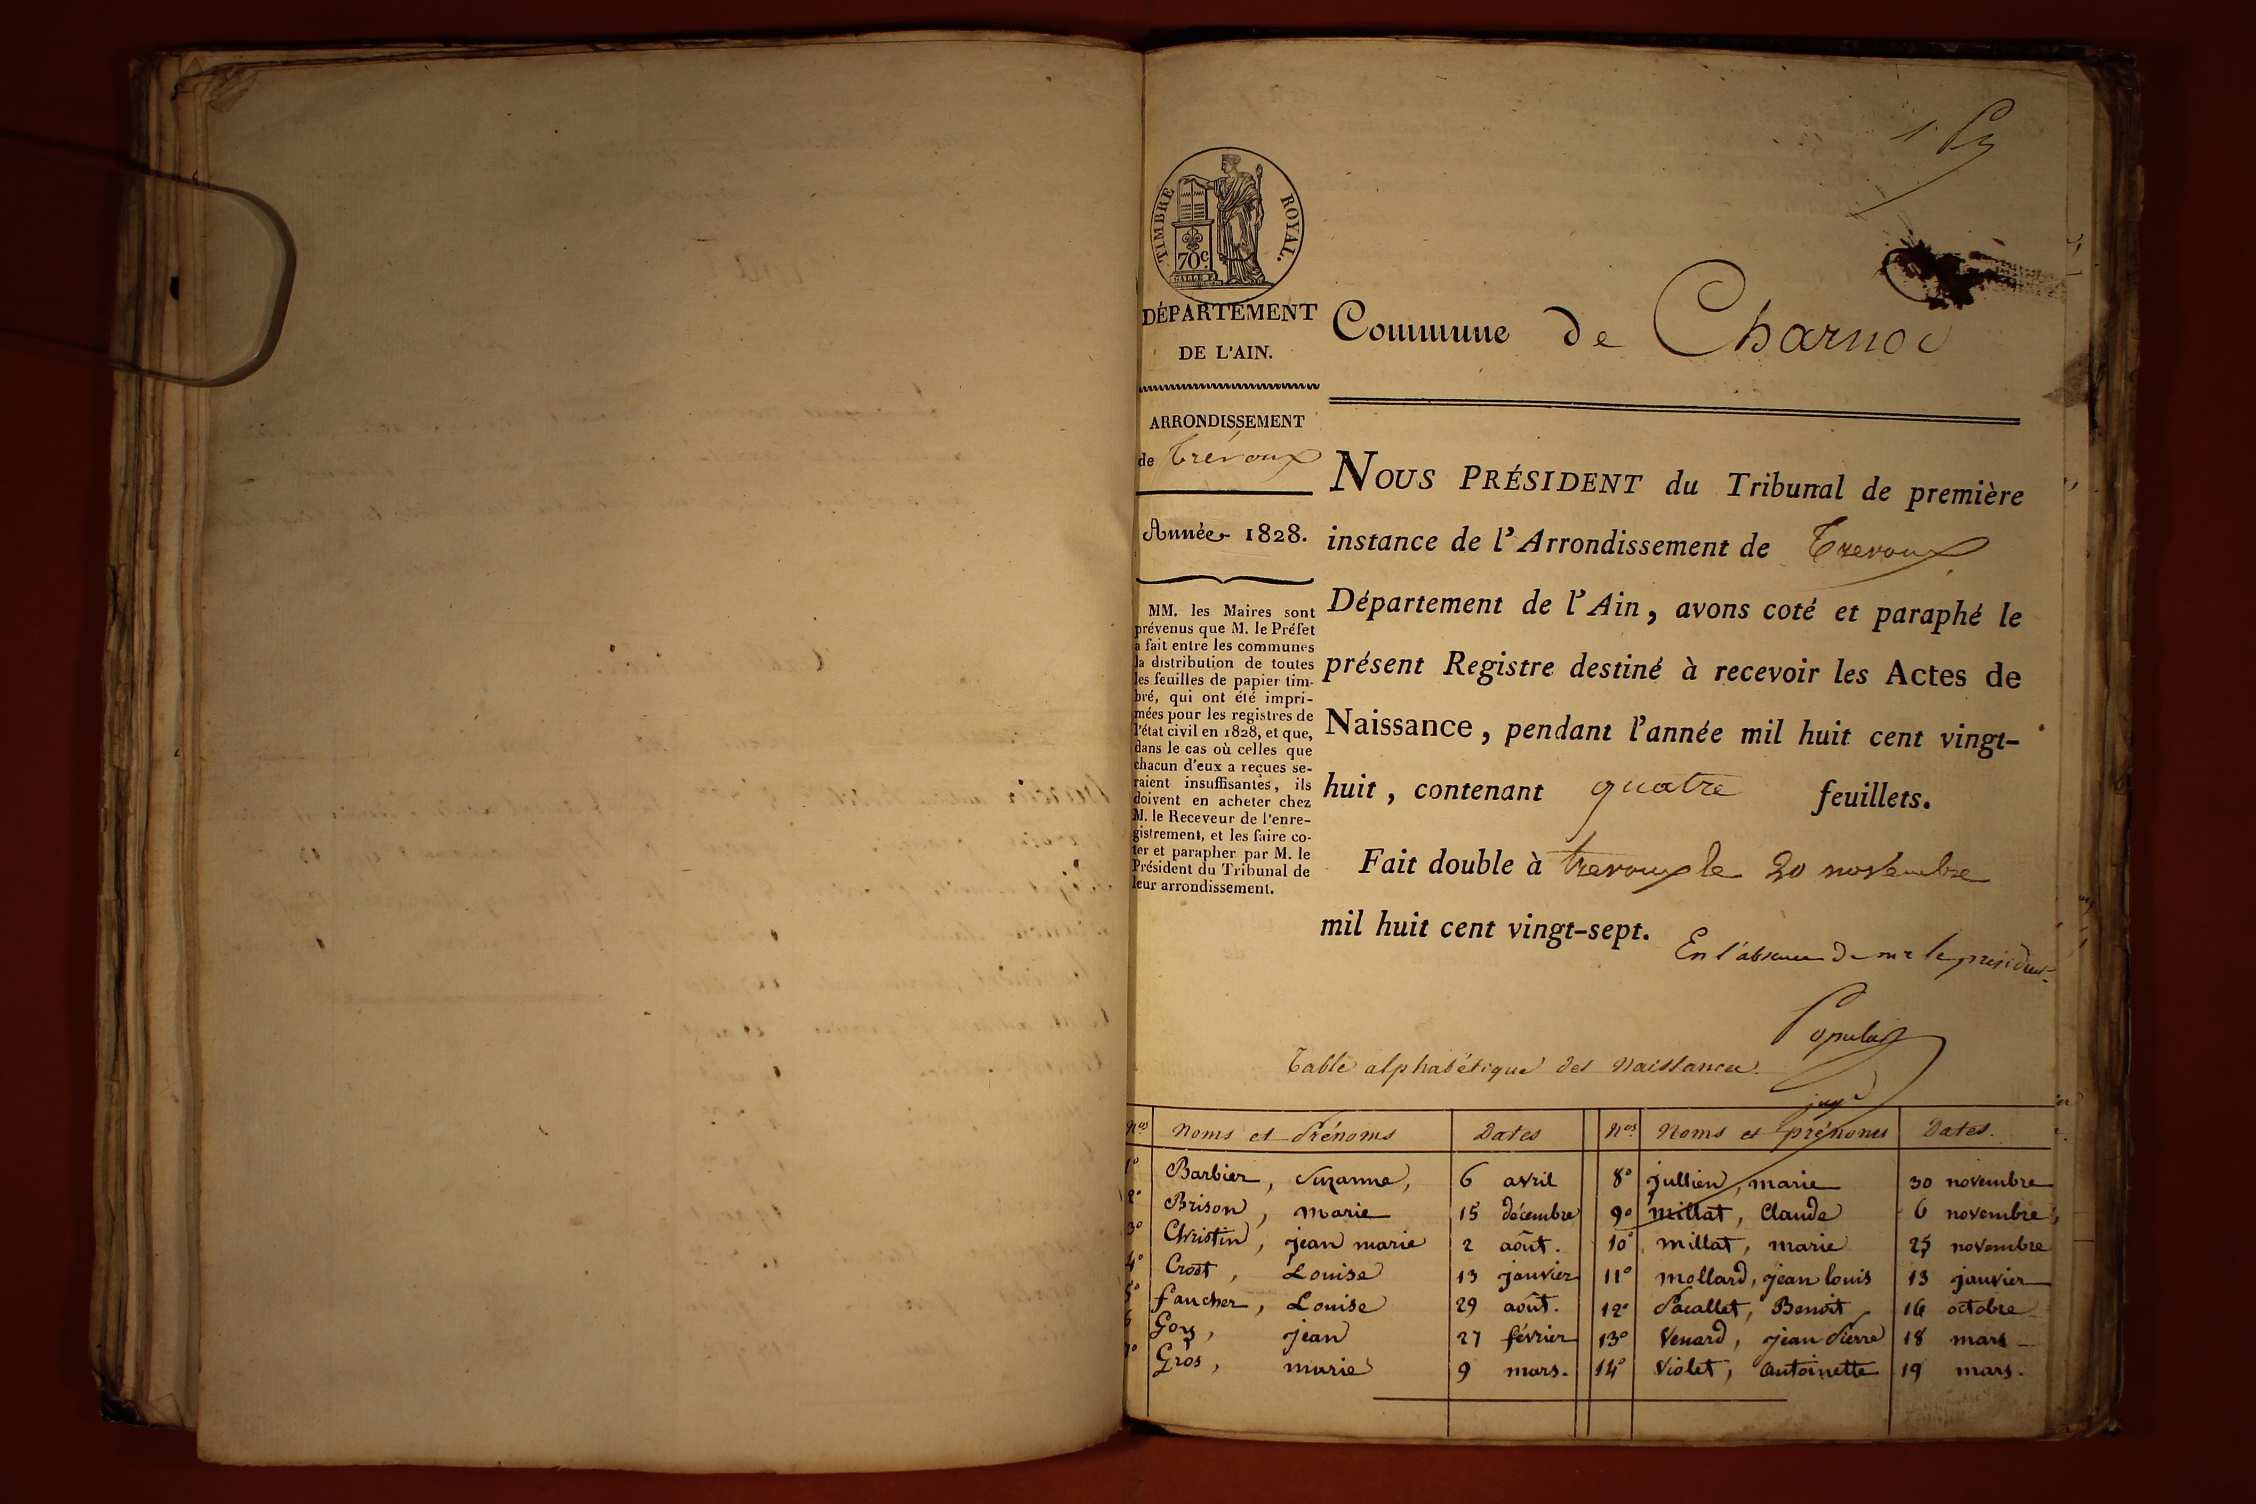 1. Py
TIMBRE ROYAL.
70c.
DÉPARTEMENT
DE L'AIN.
ARRONDISSEMENT
de Trévoux
Année 1828.
MM. les Maires sont
prévenus que M. le Préfet
a fait entre les communes
la distribution de toutes
les feuilles de papier tim-
bré, qui ont été impri-
mées pour les registres de
l'état civil en 1828, et que,
dans le cas où celles que
chacun d'eux a reçues se-
raient insuffisantes, ils
doivent en acheter chez
M. le Receveur de l'enre-
gistrement, et les faire co-
ter et parapher par M. le
Président du Tribunal de
leur arrondissement.
Commune de Charnoc
NOUS PRÉSIDENT du Tribunal de première
instance de l'Arrondissement de Trevoux
Département de l'Ain, avons coté et paraphé le
présent Registre destiné à recevoir les Actes de
Naissance, pendant l'année mil huit cent vingt-
huit, contenant quatre feuillets.
Fait double à trevoux le 20 novembre
mil huit cent vingt-sept.
En l'absence de mr le president
Populus
juge
Table alphabétique des Naissances.
Nos Noms et Prénoms Dates Nos Noms et prénoms Dates.
1o Barbier, Suzanne, 6 avril 8o jullien, marie 30 novembre
2o Brison, marie 15 décembre 9o millat, Claude 6 novembre
3o Christin, jean marie 2 août. 10o millat, marie 25 novembre
4o Crost, Louise 13 janvier 11o mollard, jean louis 13 janvier
5o faucher, Louise 29 août. 12o Pacallet, Benoit 16 octobre
6 Goy, jean 27 février 13o Venard, jean Pierre 18 mars
7o Gros, marie 9 mars. 14o Violet, antoinette 19 mars.